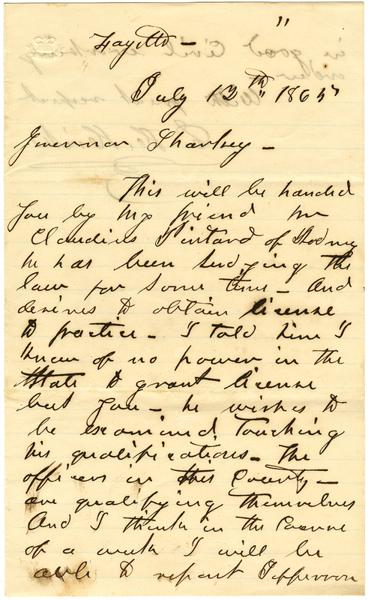 Fayette -
July 13th 1865
Governor Sharkey -
This will be handed
You by My friend Mr
Claudius Pintard of Rodney
he has been studying the
law for some time - And
desires to obtain license
to practice - I told him I
Knew of no power in the
State to grant license
but You - he wishes to
be examined touching
his qualifications - The
officers in this County -
are qualifying themselves
And I think in the Course
of a week I will be
able to report Jefferson